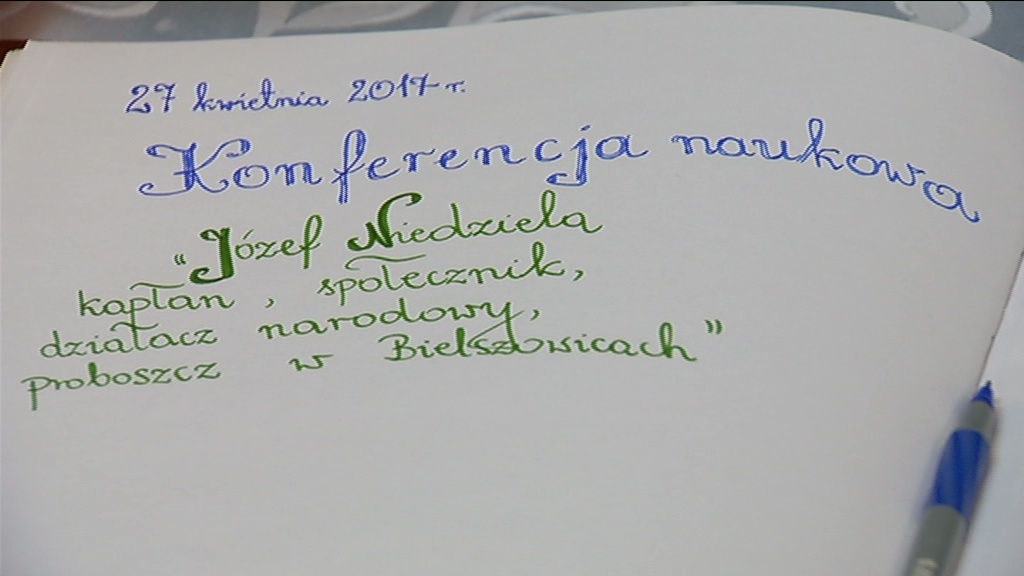 27 kwietnia 2017 r.
Konferencja naukowa
"Józef Niedziela
kapłan, społecznik,
działacz narodowy,
proboszcz w Bielszowicach"